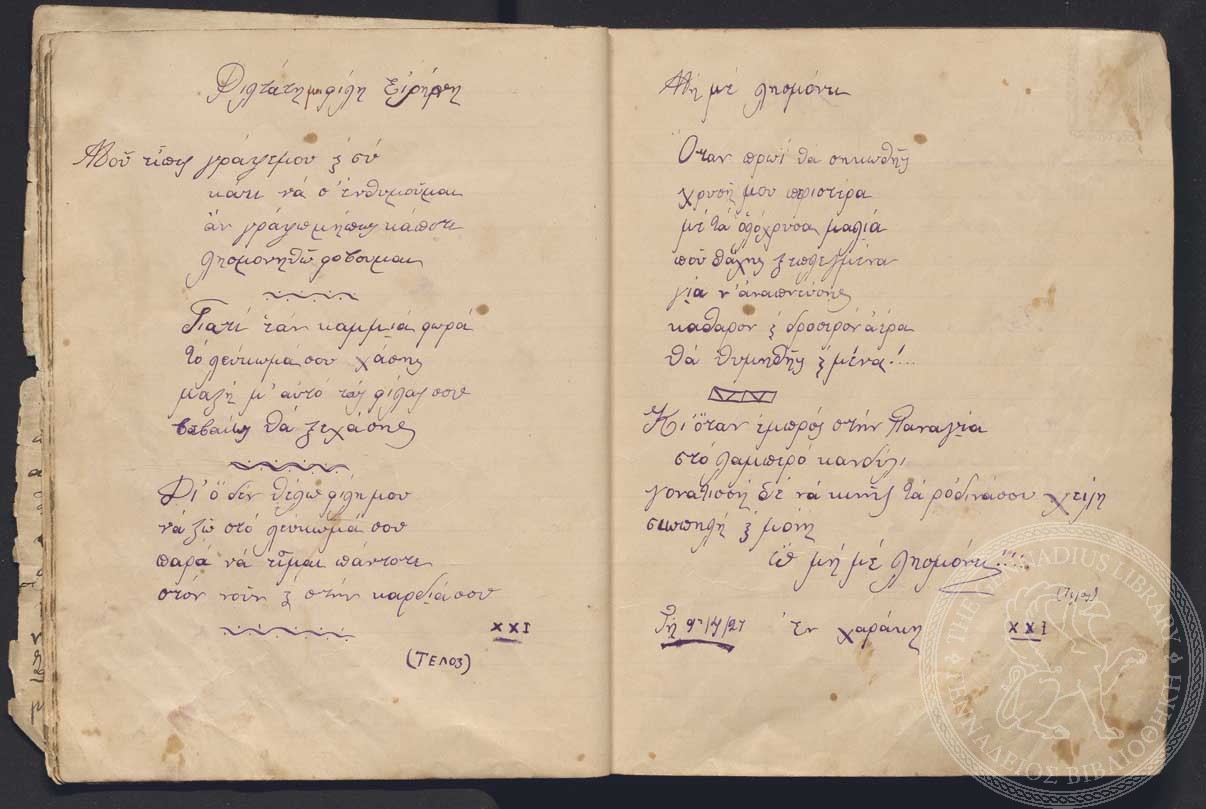 Φιλτάτη μοι φίλη Εἰρήνη
Ἀφοῦ εἶπες γράψε μου & σύ
κάτι νά σ' ἐνθυμοῦμαι
ἄν γράψω μήπως κάποτε
λησμονηθῶ φοβοῦμαι
Γιατί ἐάν καμμιά φωρά
τό λεύκωμά σου χάσῃς
μαζή μ' αὐτό τάς φίλας σου
βεβαίως θά ξεχάσῃς
Δι' ὅ δέν θέλω φίλη μου
νά ζῶ στό λεύκωμά σου
παρά νά εἶμαι πάντοτε
στόν νοῦν & στήν καρδιά σου
XXI
(ΤΕΛΟΣ)
Μή μέ λησμόνει
Ὅταν πρωΐ θά σηκωθῇς
χρυσῆ μου περιστέρα
μέ τά ὁλόχρυσα μαλιά
πού θἄχῃς ξεπλεγμένα
γιά ν' ἀναπνεύσῃς
καθαρόν & δροσερόν ἀέρα
θά θυμηθῇς & μένα!....
Κι' ὅταν ἐμπρός στήν Παναγία
στό λαμπερό κανδύλι
γονατισσή δέ νά κινῇς τά ρόδινά σου χείλη
σιωπηλή & μόνη
μή μέ λησμόνει!!!..
(Τέλος)
Τῇ 9 27 ἐν Χαράκη XXI
THE GENNADIUS LIBRARY
ΓΕΝΝΑΔΕΙΟΣ ΒΙΒΛΙΟΘΗΚΗ